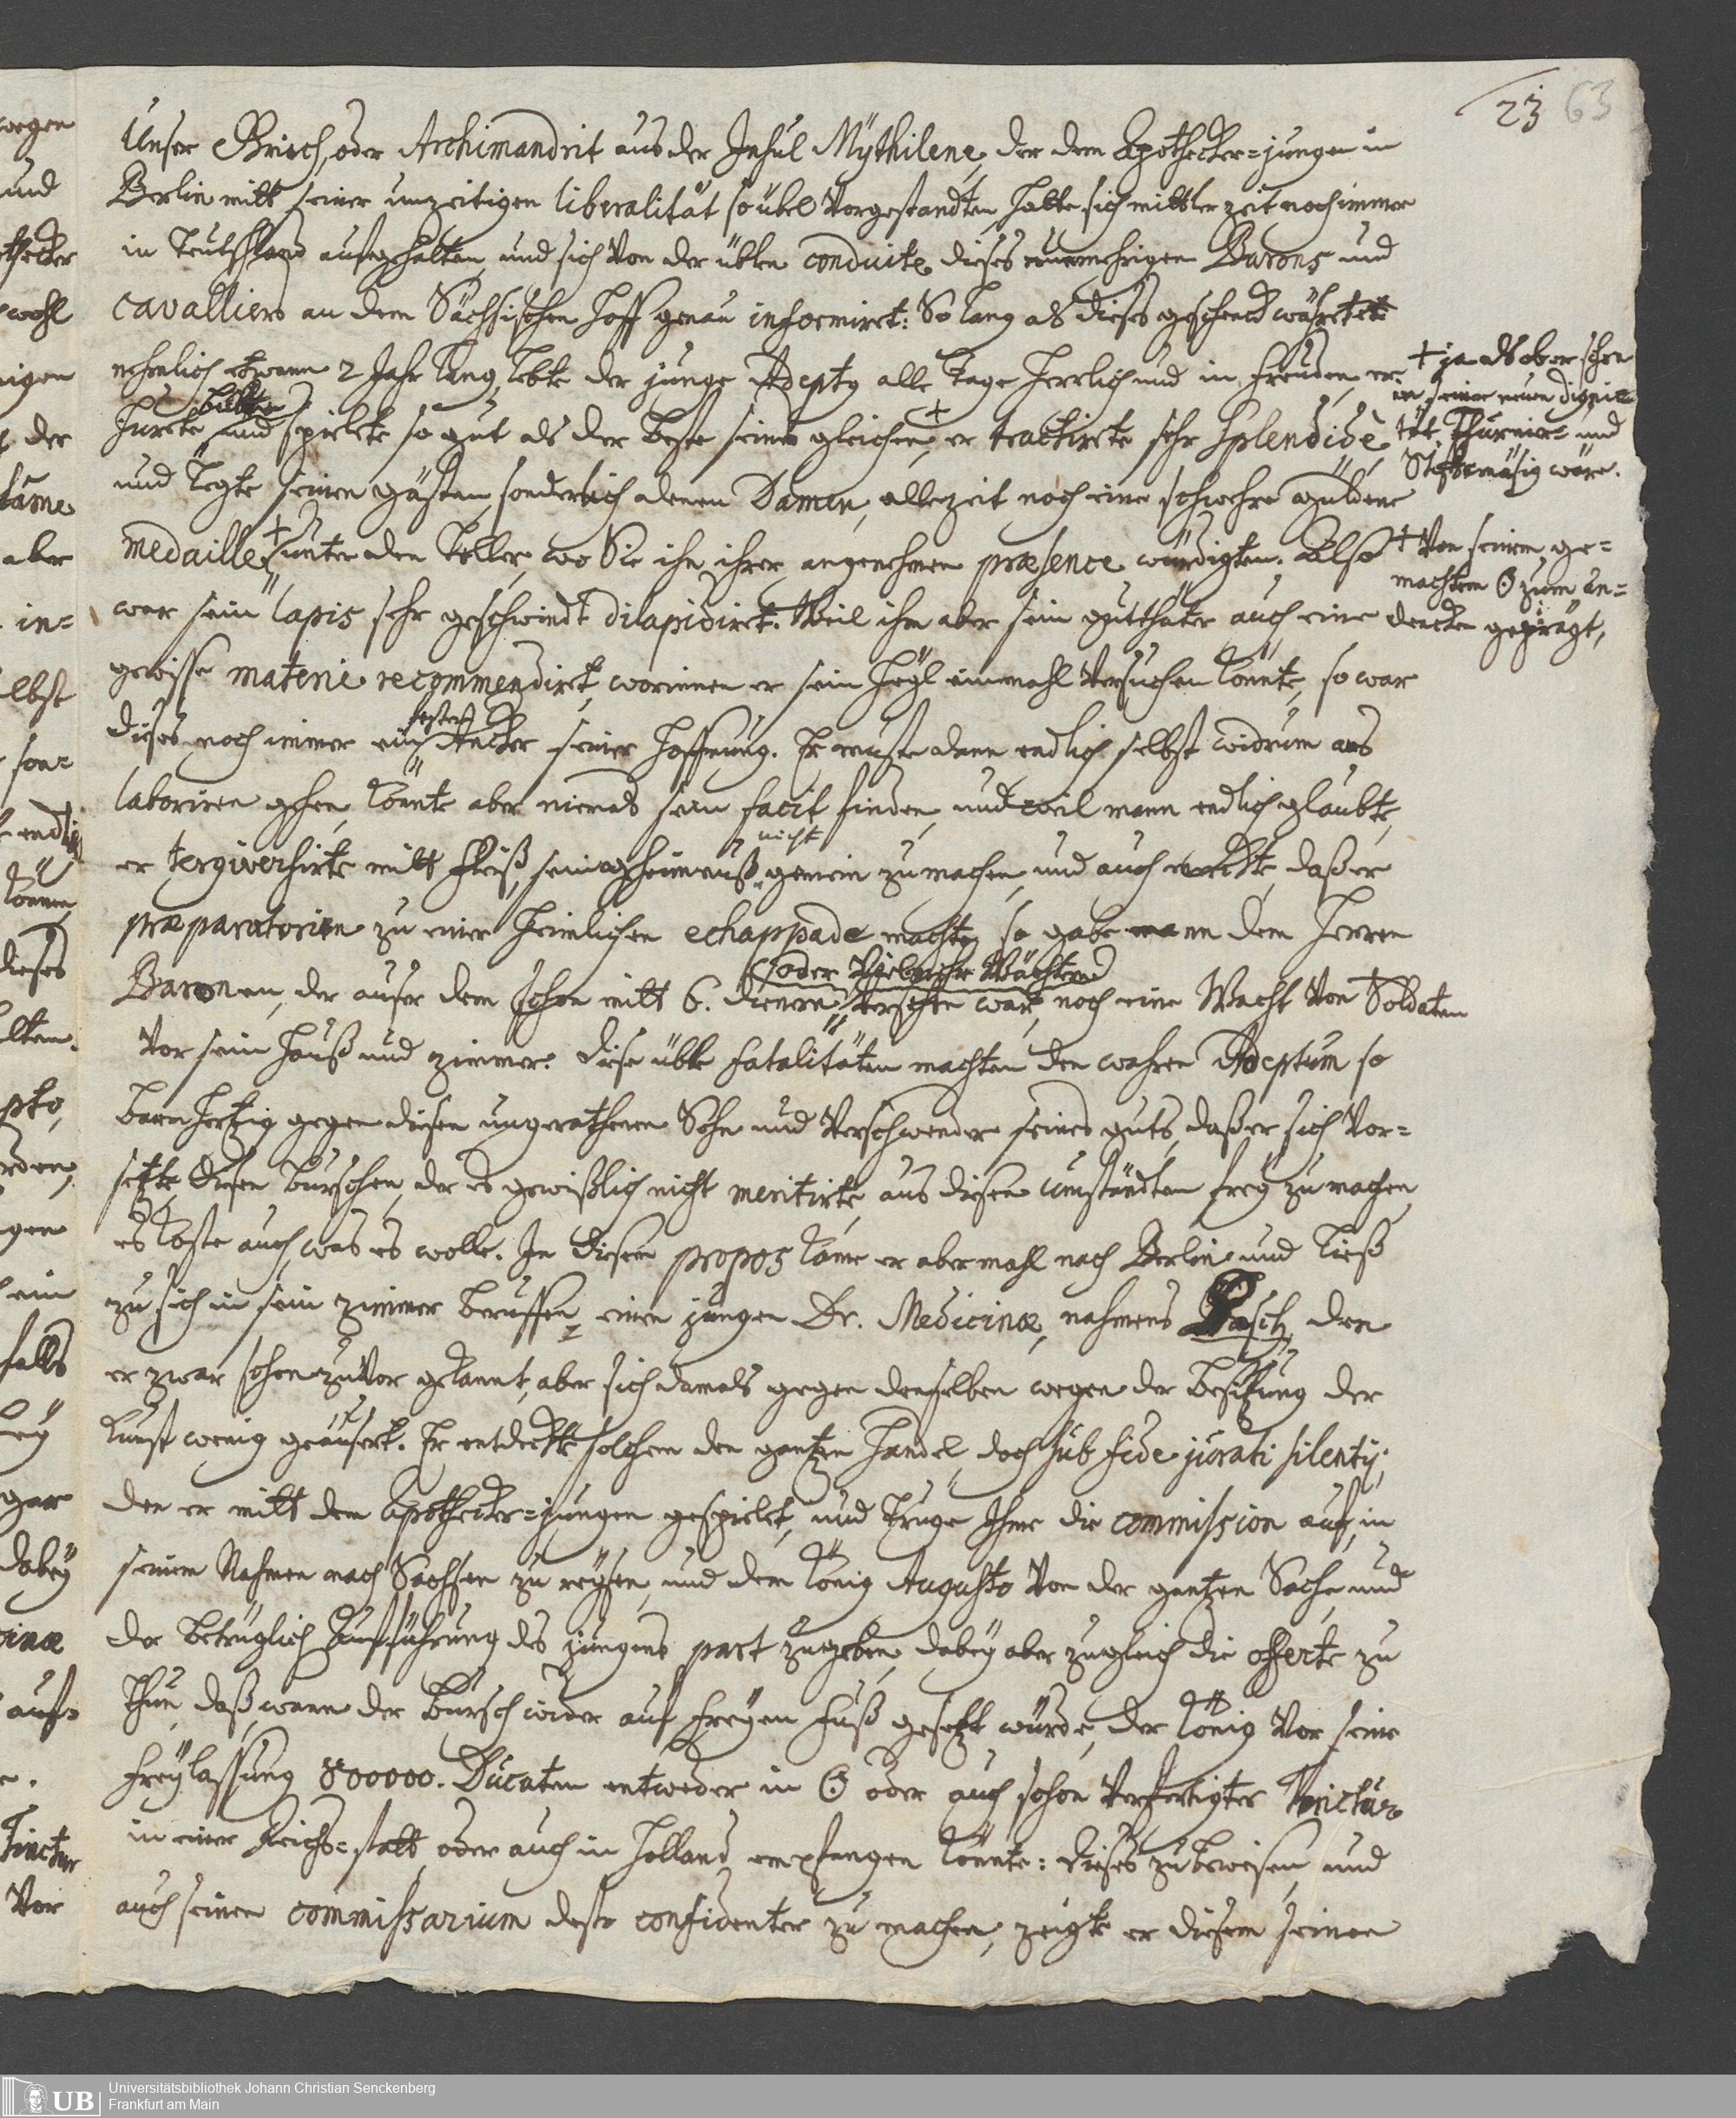 23 63
Unser Griech, oder Archimandrit aus der Insul Mythilene, der dem Apothecker-jungen in
Berlin mitt seiner unzeitigen liberalität so übel vorgestandten, hatte sich mittler zeit noch immer
in Teutschland aufgehalten, und sich von der üblen conduite dieses nunmehrigen Barons und
cavalliers an dem Sächsischen Hoff genau informiret: So lang als dieses geschenck währete
nehmlich etwann 2 Jahr lang, lebte der junge Adeptg alle Tage herrlich und in freuden, er
hurete buhlte und spielete so gut als der beste seines gleichen + er tractirete sehr splendide,
+ ja als ob er schon
in seiner neuen digni-
tät, Thurnier- und
Stiftsmäsig wäre.
und legte seinen gästen, sonderlich denen Damen, allezeit noch eine schwehre güldene
medaille + unter den Teller, wo Sie ihn ihrer angenehmen præsence würdigten. Also
+ von seinem ge-
machten ☉ zum an-
dencken geprägt,
war sein lapis sehr geschwindt dilapidiret. Weil ihm aber sein gutthäter auch eine
gewisse materie recommendiret, worinnen er sein Heyl einmahl versuchen könnte, so war
dieses noch immer ein fester Ancker seiner Hoffnung. Er muste dann endlich selbst widrum ans
laboriren gehen, könnte aber niemals sein facit finden, und weil mann endlich glaubte,
er tergiversirte mitt fleiß, sein geheimnuß nicht gemein zu machen, und auch merckte, daß er
præparatorien zu einer heimlichen echappade machte, so gabe mann dem Herren
Baronen, der auser dem schon mitt 6. dienern (oder vielmehr Wächtern) versehen war, noch eine Wacht von Soldaten
vor sein Hauß und zimmer. Diese üble fatalitäten machten den wahren Adeptum so
barmhertzig gegen diesen ungerathenen Sohn und verschwender seines guts, daß er sich vor-
setzte, diesen burschen, der es gewißlich nicht meritirte, aus diesen umständten frey zu machen,
es koste auch, was es wolle. In diesem propos kame er abermahl nach Berlin und ließ
zu sich in sein zimmer beruffen einen jungen Dr. Medicinæ, nahmens Pasch, den
er zwar schon zuvor gekannt, aber sich damals gegen denselben wegen der besitzung der
kunst wenig geäusert. Er entdeckte solchem den gantzen handel, doch sub fide jurati silentij,
den er mitt dem apothecker-jungen gespielet, und truge Ihme die commission auf, in
seinem Nahmen nach Sachsen zu reysen, und dem König Augusto von der gantzen Sache, und
der betrüglich Aufführung des jungens part zu geben, dabey aber zugleich die offerte zu
thun, daß wann der bursch wider auf freyen fuß gesetzt würde, der König vor seine
freylassung 800000. Ducaten entweder in ☉ oder auch schon verfertigter Tinctur
in einer Reichs-statt, oder auch in Holland empfangen könnte: dieses zu beweisen, und
auch seinen commissarium desto confidenter zu machen, zeigte er diesem seinen
wegen
und
wohl
der
kame
aber
in-
selbst
son-
endlich
können
dieses
pto,
ein
falls
gar
dabey
auf-
Tinctur
Vor
UB Universitätsbibliothek Johann Christian Senckenberg
Frankfurt am Main